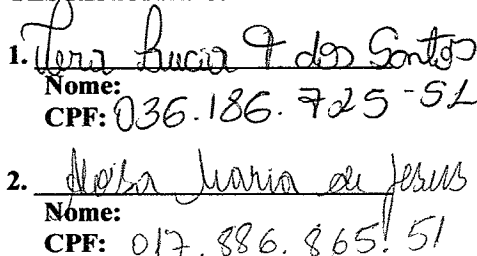 1. Vera Lucia T dos Santos
Nome:
CPF: 036.186.725-51
2. Maria de Jesus
Nome:
CPF: 017.886.865.51